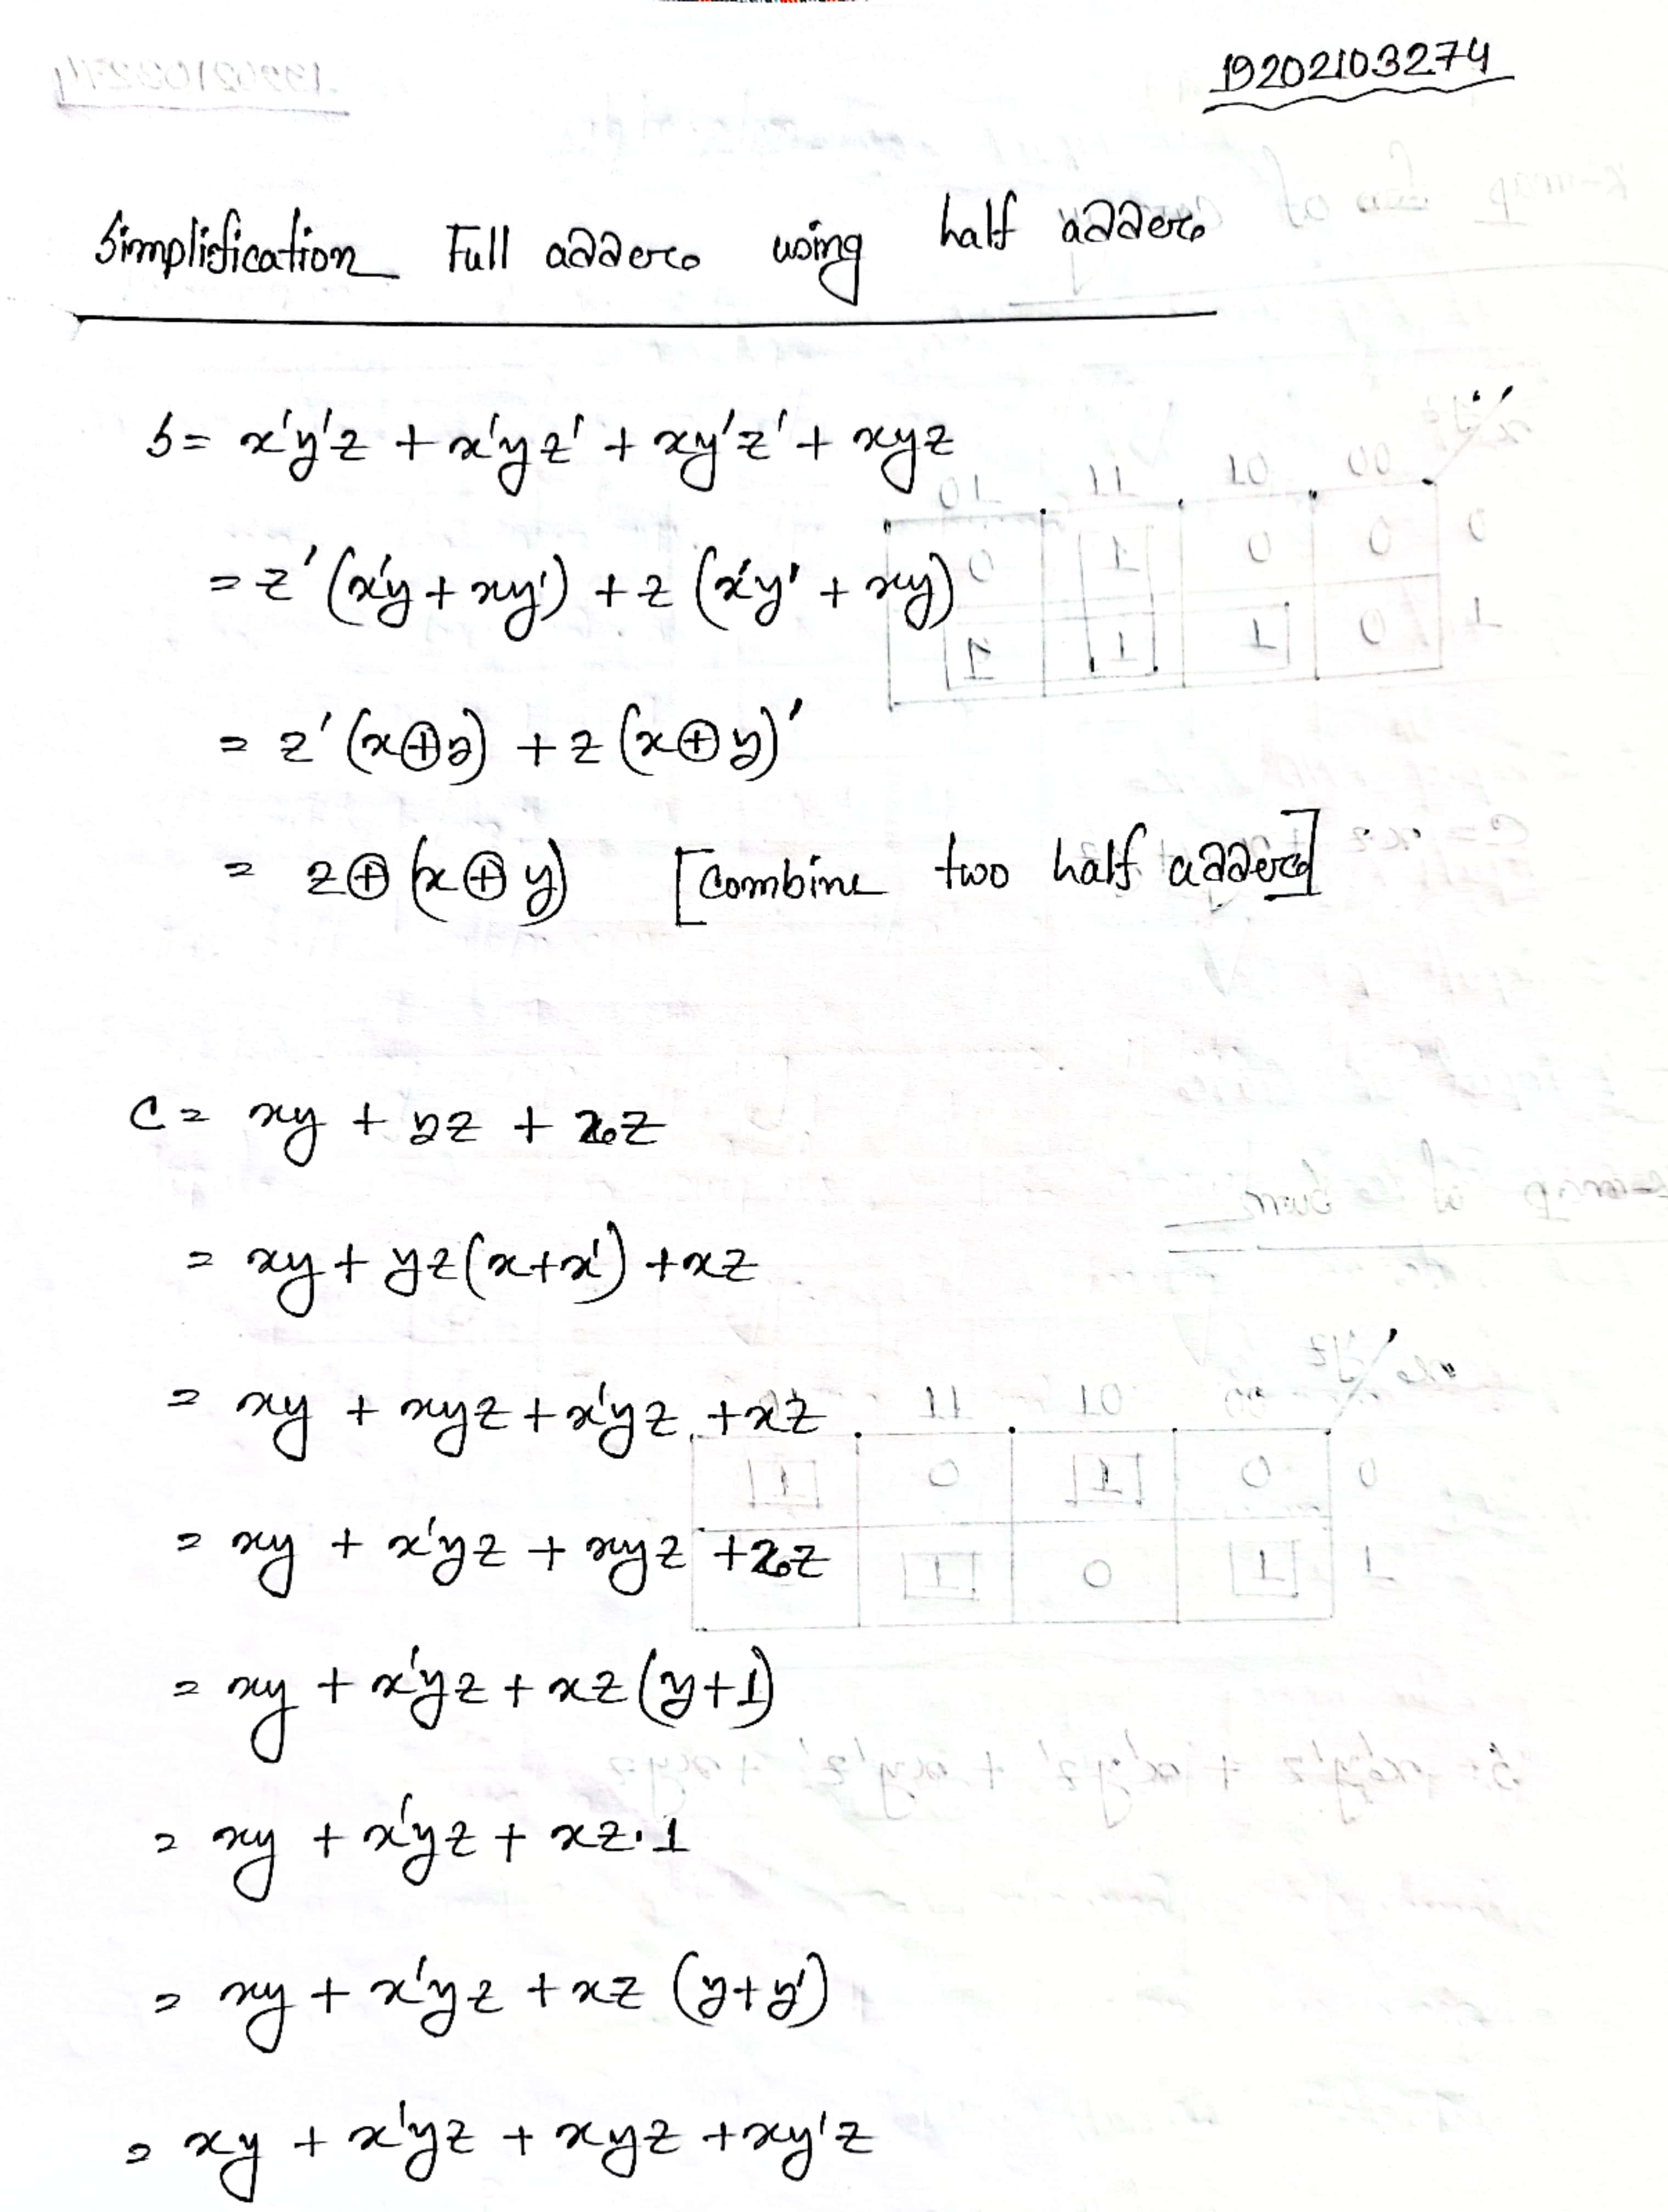 19202103274
Simplification Full adder using half adder
S = x'y'z + x'yz' + xy'z' + xyz
= z' (x'y + xy') + z (x'y' + xy)
= z' (x⊕y) + z (x⊕y)'
= z⊕(x⊕y) [combine two half adder]
C = xy + yz + xz
= xy + yz(x+x') + xz
= xy + xyz + x'yz + xz
= xy + x'yz + xyz + xz
= xy + x'yz + xz(y+1)
= xy + x'yz + xz.1
= xy + x'yz + xz (y+y')
= xy + x'yz + xyz + xy'z